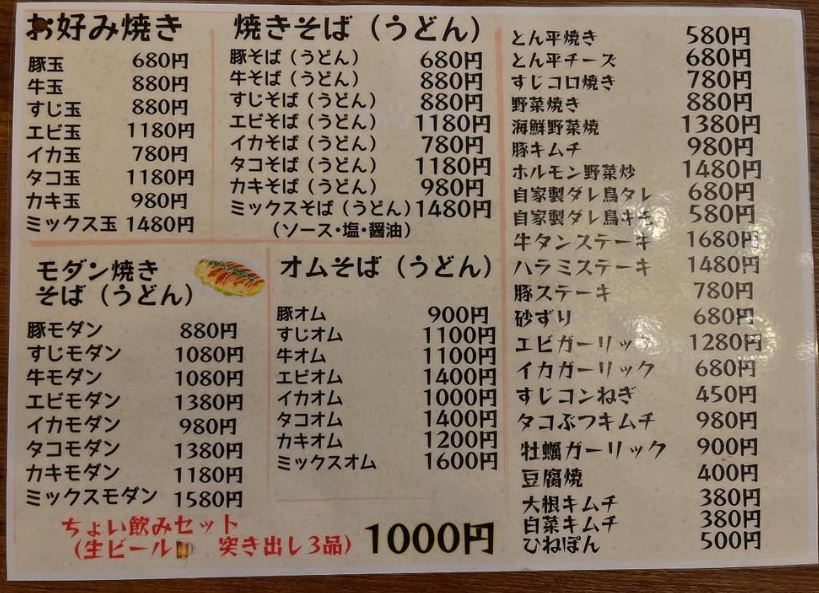 お好み焼き
豚玉 680円
牛玉 880円
すじ玉 880円
エビ玉 1180円
イカ玉 780円
タコ玉 1180円
カキ玉 980円
ミックス玉 1480円
焼きそば（うどん）
豚そば（うどん） 680円
牛そば（うどん） 880円
すじそば（うどん） 880円
エビそば（うどん） 1180円
イカそば（うどん） 780円
タコそば（うどん） 1180円
カキそば（うどん） 980円
ミックスそば（うどん） 1480円
（ソース・塩・醤油）
モダン焼き
そば（うどん）
豚モダン 880円
すじモダン 1080円
牛モダン 1080円
エビモダン 1380円
イカモダン 980円
タコモダン 1380円
カキモダン 1180円
ミックスモダン 1580円
オムそば（うどん）
豚オム 900円
すじオム 1100円
牛オム 1100円
エビオム 1400円
イカオム 1000円
タコオム 1400円
カキオム 1200円
ミックスオム 1600円
とん平焼き 580円
とん平チーズ 680円
すじコロ焼き 780円
野菜焼き 880円
海鮮野菜焼 1380円
豚キムチ 980円
ホルモン野菜炒 1480円
自家製ダレ鳥タレ 680円
自家製ダレ鳥キモ 580円
牛タンステーキ 1680円
ハラミステーキ 1480円
豚ステーキ 780円
砂ずり 680円
エビガーリック 1280円
イカガーリック 680円
すじコンねぎ 450円
タコぶつキムチ 980円
牡蠣ガーリック 900円
豆腐焼 400円
大根キムチ 380円
白菜キムチ 380円
ひねぽん 500円
ちょい飲みセット
（生ビール 突き出し3品） 1000円